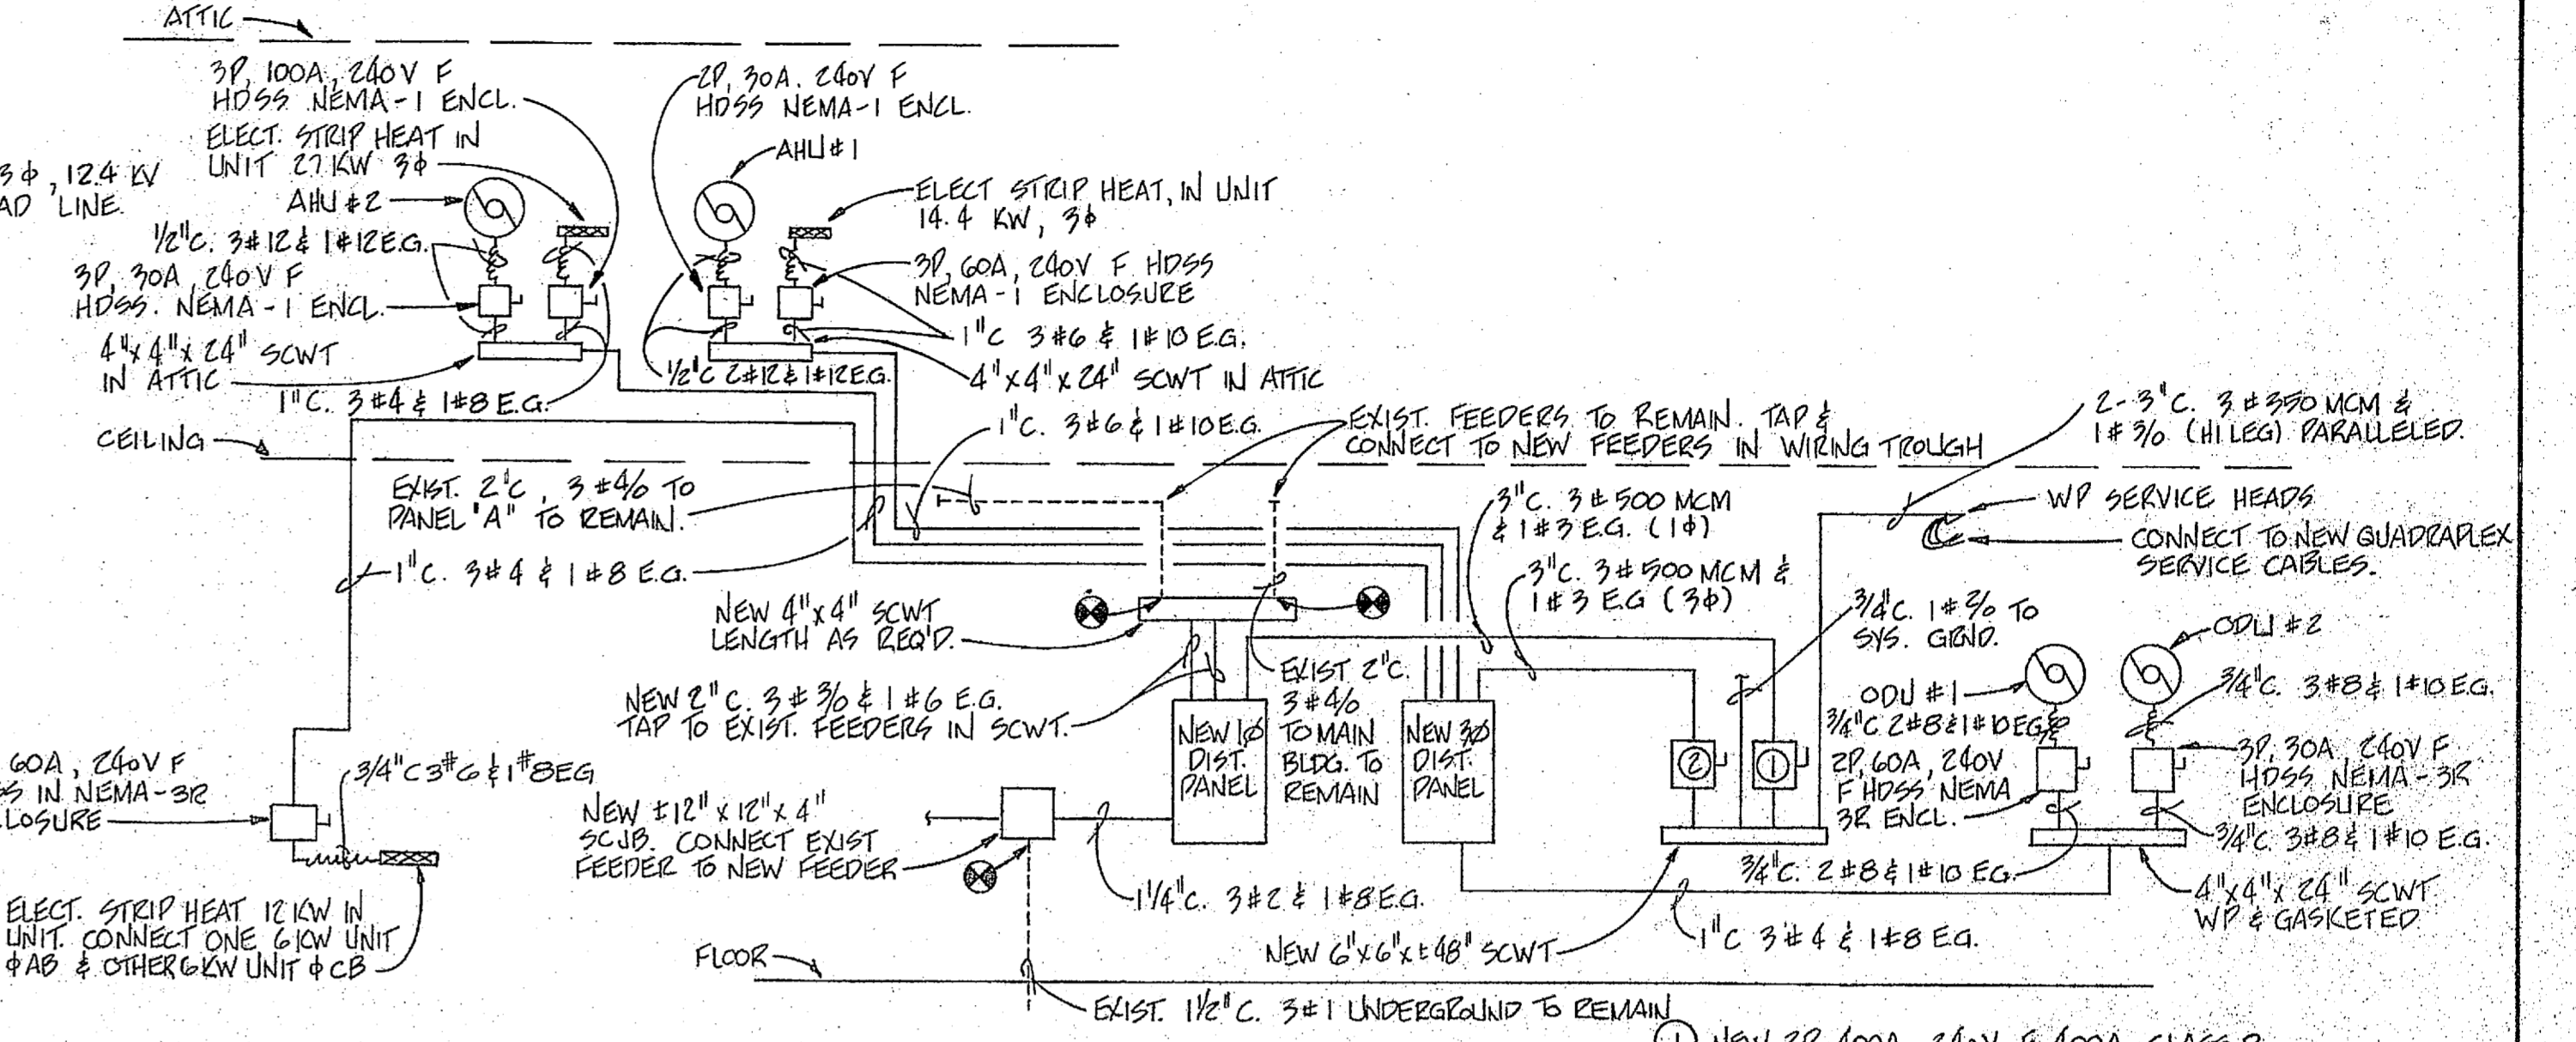 ATTIC
3P, 100A, 240V F
HDSS NEMA-1 ENCL.
ELECT. STRIP HEAT IN
UNIT 27 KW 3ϕ
3ϕ, 12.4 KV
AD LINE.
AHU #2
1/2"C. 3#12 & 1#12 E.G.
3P, 30A, 240V F
HDSS. NEMA-1 ENCL.
4"x4"x24" SCWT
IN ATTIC
1"C. 3#4 & 1#8 E.G.
2P, 30A. 240V F
HDSS NEMA-1 ENCL.
AHU #1
ELECT STRIP HEAT, IN UNIT
14.4 KW, 3ϕ
3P, 60A, 240V F HDSS
NEMA-1 ENCLOSURE
1"C 3#6 & 1#10 E.G.
1/2"C 2#12 & 1#12 E.G.
4"x4"x24" SCWT IN ATTIC
1"C. 3#6 & 1#10 E.G.
EXIST. FEEDERS TO REMAIN. TAP &
CONNECT TO NEW FEEDERS IN WIRING TROUGH
2-3"C. 3#350 MCM &
1#3/0 (HI LEG) PARALLELED.
CEILING
EXIST. 2"C, 3#4/0 TO
PANEL "A" TO REMAIN.
1"C. 3#4 & 1#8 E.G.
3"C. 3#500 MCM
& 1#3 E.G. (1ϕ)
3"C. 3#500 MCM &
1#3 E.G (3ϕ)
WP SERVICE HEADS
CONNECT TO NEW QUADRAPLEX
SERVICE CABLES.
NEW 4"x4" SCWT
LENGTH AS REQ'D.
3/4"C. 1#2/0 TO
SYS. GRND.
ODU #2
NEW 2"C. 3#3/0 & 1#6 E.G.
TAP TO EXIST. FEEDERS IN SCWT.
NEW 1ϕ
DIST.
PANEL
EXIST 2"C.
3#4/0
TO MAIN
BLDG. TO
REMAIN
NEW 3ϕ
DIST.
PANEL
2
1
ODU #1
3/4"C 2#8 & 1#10 EG
2P, 60A, 240V
F HDSS NEMA
3R ENCL.
3/4"C. 3#8 & 1#10 E.G.
3P, 30A 240V F
HDSS NEMA-3R
ENCLOSURE
3/4"C. 3#8 & 1#10 E.G.
3/4"C. 2#8 & 1#10 E.G.
4"x4"x24" SCWT
WP & GASKETED
60A, 240V F
SS IN NEMA-3R
LOSURE
3/4"C 3#6 & 1#8EG
NEW ±12"x12"x4"
SCJB. CONNECT EXIST
FEEDER TO NEW FEEDER
1 1/4"C. 3#2 & 1#8 E.G.
ELECT. STRIP HEAT 12 KW IN
UNIT. CONNECT ONE 6 KW UNIT
ϕAB & OTHER 6 KW UNIT ϕCB
NEW 6"x6"x±48" SCWT
1"C 3#4 & 1#8 E.G.
FLOOR
EXIST. 1 1/2"C. 3#1 UNDERGROUND TO REMAIN
1 NEW 3P, 400A, 240V F, 400A CLASS R